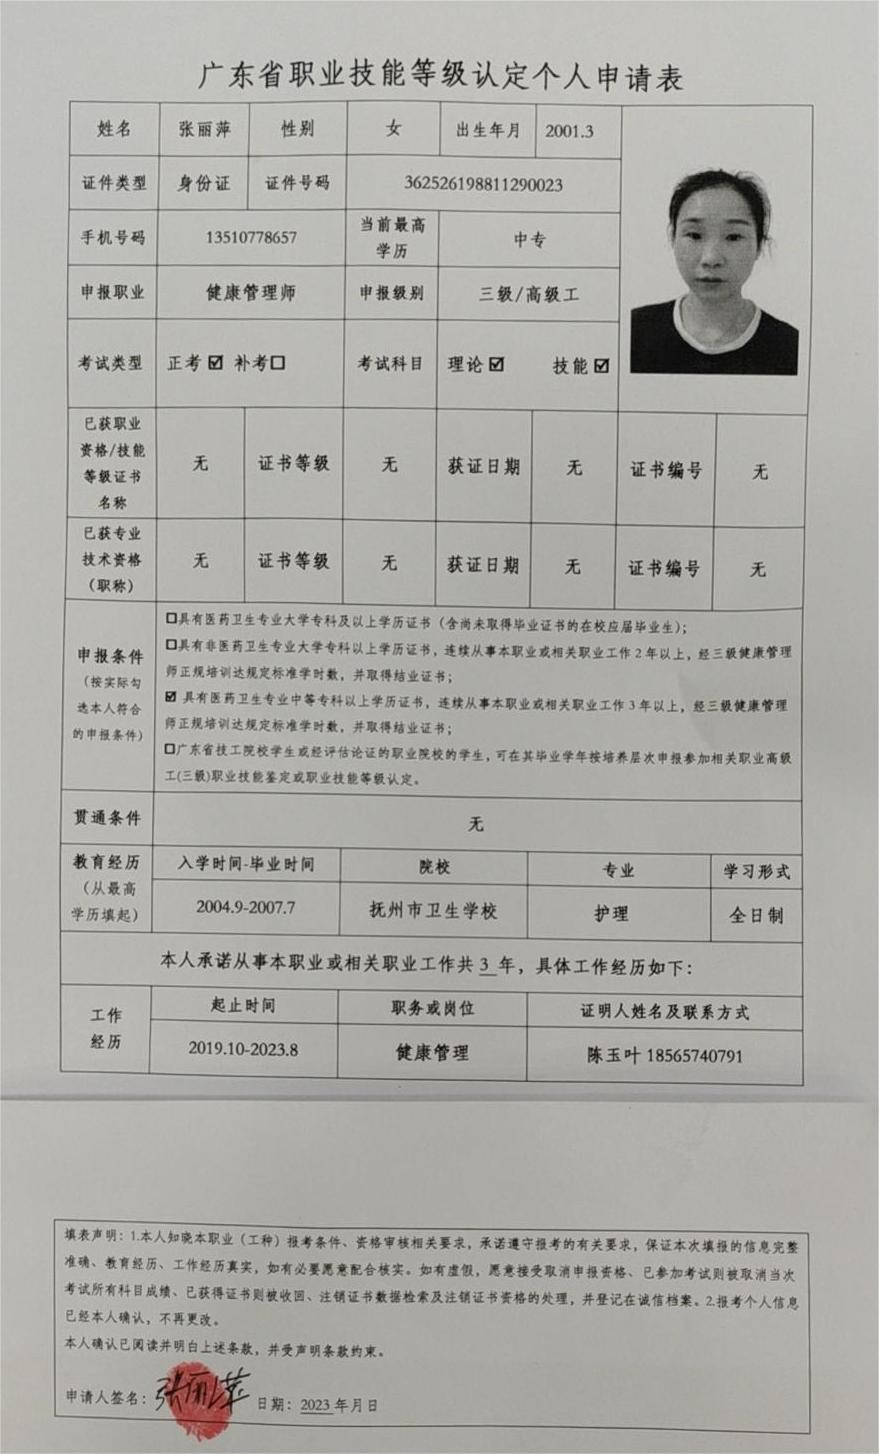 广东省职业技能等级认定个人申请表
姓名 张丽萍 性别 女 出生年月 2001.3
证件类型 身份证 证件号码 362526198811290023
手机号码 13510778657 当前最高学历 中专
申报职业 健康管理师 申报级别 三级/高级工
考试类型 正考☑ 补考☐ 考试科目 理论☑ 技能☑
已获职业
资格/技能
等级证书
名称
无 证书等级 无 获证日期 无 证书编号 无
已获专业
技术资格
(职称)
无 证书等级 无 获证日期 无 证书编号 无
申报条件
(按实际勾
选本人符合
的申报条件)
☐具有医药卫生专业大学专科及以上学历证书(含尚未取得毕业证书的在校应届毕业生);
☐具有非医药卫生专业大学专科以上学历证书,连续从事本职业或相关职业工作2年以上,经三级健康管理
师正规培训达规定标准学时数,并取得结业证书;
☑ 具有医药卫生专业中等专科以上学历证书,连续从事本职业或相关职业工作3年以上,经三级健康管理
师正规培训达规定标准学时数,并取得结业证书;
☐广东省技工院校学生或经评估论证的职业院校的学生,可在其毕业学年按培养层次申报参加相关职业高级
工(三级)职业技能鉴定或职业技能等级认定。
贯通条件 无
教育经历
(从最高
学历填起)
入学时间-毕业时间 院校 专业 学习形式
2004.9-2007.7 抚州市卫生学校 护理 全日制
本人承诺从事本职业或相关职业工作共 3 年,具体工作经历如下:
工作
经历
起止时间 职务或岗位 证明人姓名及联系方式
2019.10-2023.8 健康管理 陈玉叶 18565740791
填表声明:1.本人知晓本职业(工种)报考条件、资格审核相关要求,承诺遵守报考的有关要求,保证本次填报的信息完整
准确、教育经历、工作经历真实,如有必要愿意配合核实。如有虚假,愿意接受取消申报资格、已参加考试则被取消当次
考试所有科目成绩、已获得证书则被收回、注销证书数据检索及注销证书资格的处理,并登记在诚信档案。2.报考个人信息
已经本人确认,不再更改。
本人确认已阅读并明白上述条款,并受声明条款约束。
申请人签名:张丽萍 日期:2023 年月日